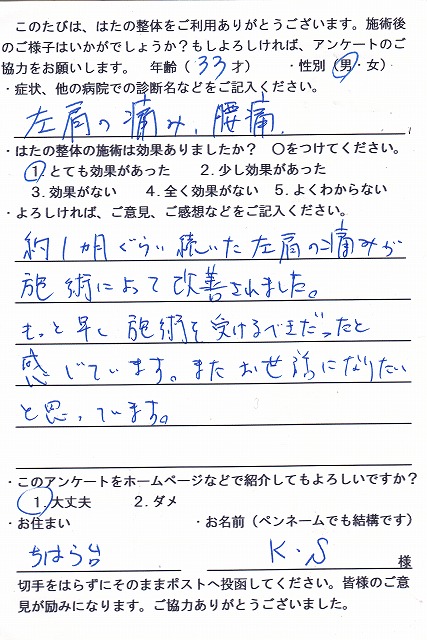 このたびは、はたの整体をご利用ありがとうございます。施術後
のご様子はいかがでしょうか?もしよろしければ、アンケートのご
協力をお願いします。 年齢( 33 才) ・性別(男・女)
・症状、他の病院での診断名などをご記入ください。
左肩の痛み、腰痛
・はたの整体の施術は効果ありましたか? ○をつけてください。
1.とても効果があった 2.少し効果があった
3.効果がない 4.全く効果がない 5.よくわからない
・よろしければ、ご意見、ご感想などをご記入ください。
約1ヵ月ぐらい続いた左肩の痛みが
施術によって改善されました。
もっと早く施術を受けるべきだったと
感じています。またお世話になりたい
と思っています。
・このアンケートをホームページなどで紹介してもよろしいですか?
1.大丈夫 2.ダメ
・お住まい ・お名前(ペンネームでも結構です)
ちはら台 K.S 様
切手をはらずにそのままポストへ投函してください。皆様のご意
見が励みになります。ご協力ありがとうございました。